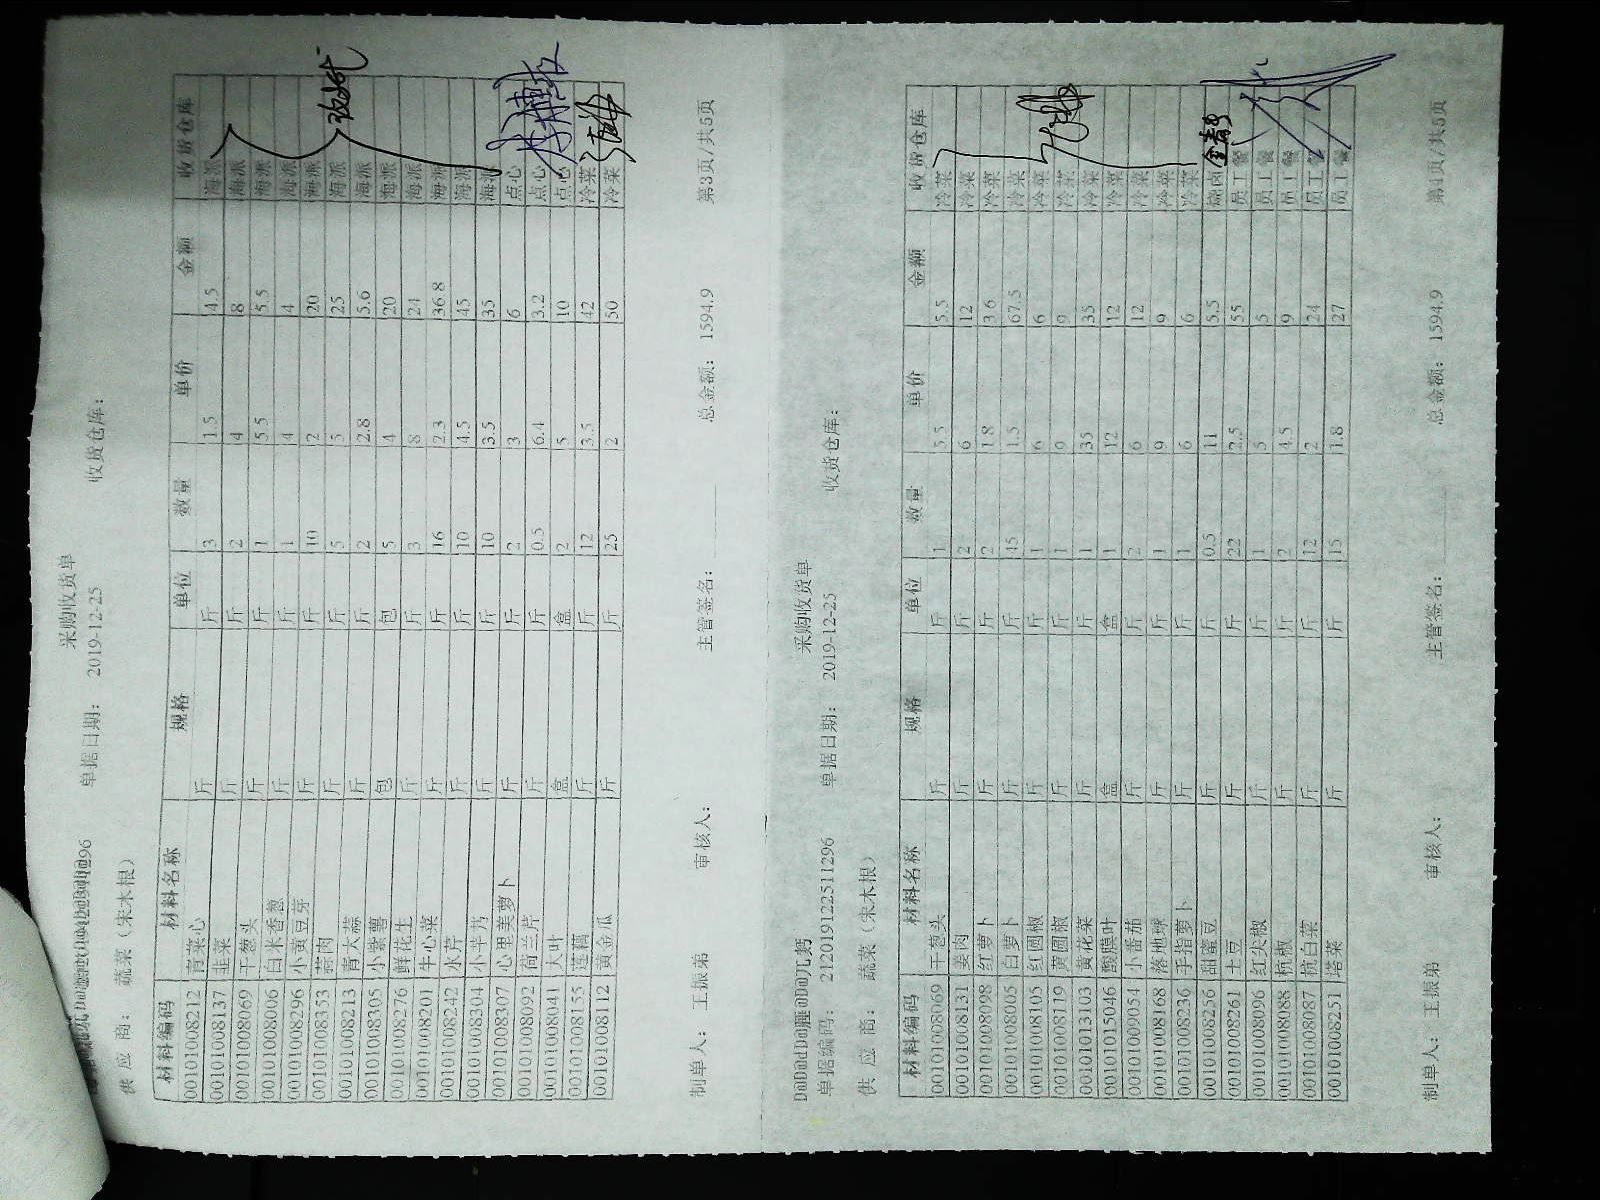 采购收货单
单据日期: 2019-12-25 收货仓库:
供 应 商: 蔬菜（宋木根）
材料编码 材料名称 规格 单位 数量 单价 金额 收货仓库
00101008212 青菜心 斤 斤 3 1.5 4.5 海派
00101008137 韭菜 斤 斤 2 4 8 海派
00101008069 干葱头 斤 斤 1 5.5 5.5 海派
00101008006 白米香葱 斤 斤 1 4 4 海派
00101008296 小黄豆芽 斤 斤 10 2 20 海派
00101008353 蒜肉 斤 斤 5 5 25 海派
00101008213 青大蒜 斤 斤 2 2.8 5.6 海派
00101008305 小紫薯 包 包 5 4 20 海派
00101008276 鲜花生 斤 斤 3 8 24 海派
00101008201 牛心菜 斤 斤 16 2.3 36.8 海派
00101008242 水芹 斤 斤 10 4.5 45 海派
00101008304 小芋艿 斤 斤 10 3.5 35 海派
00101008307 心里美萝卜 斤 斤 2 3 6 点心
00101008092 荷兰芹 斤 斤 0.5 6.4 3.2 点心
00101008041 大叶 盒 盒 2 5 10 点心
00101008155 莲藕 斤 斤 12 3.5 42 冷菜
00101008112 黄金瓜 斤 斤 25 2 50 冷菜
制单人: 王振弟 审核人: 主管签名: 总金额: 1594.9 第3页/共5页
采购收货单
单据编码: 21201912251​1296 单据日期: 2019-12-25 收货仓库:
供 应 商: 蔬菜（宋木根）
材料编码 材料名称 规格 单位 数量 单价 金额 收货仓库
00101008069 干葱头 斤 斤 1 5.5 5.5 冷菜
00101008131 姜肉 斤 斤 2 6 12 冷菜
00101008098 红萝卜 斤 斤 2 1.8 3.6 冷菜
00101008005 白萝卜 斤 斤 45 1.5 67.5 冷菜
00101008105 红圆椒 斤 斤 1 6 6 冷菜
00101008119 黄圆椒 斤 斤 1 9 9 冷菜
00101013103 黄花菜 斤 斤 1 35 35 冷菜
00101015046 酸膜叶 盒 盒 1 12 12 冷菜
00101009054 小番茄 斤 斤 2 6 12 冷菜
00101008168 落地球 斤 斤 1 9 9 冷菜
00101008236 手指萝卜 斤 斤 1 6 6 冷菜
00101008256 甜蜜豆 斤 斤 0.5 11 5.5 烧卤
00101008261 土豆 斤 斤 22 2.5 55 员工餐
00101008096 红尖椒 斤 斤 1 5 5 员工餐
00101008088 杭椒 斤 斤 2 4.5 9 员工餐
00101008087 杭白菜 斤 斤 12 2 24 员工餐
00101008251 塔菜 斤 斤 15 1.8 27 员工餐
制单人: 王振弟 审核人: 主管签名: 总金额: 1594.9 第4页/共5页